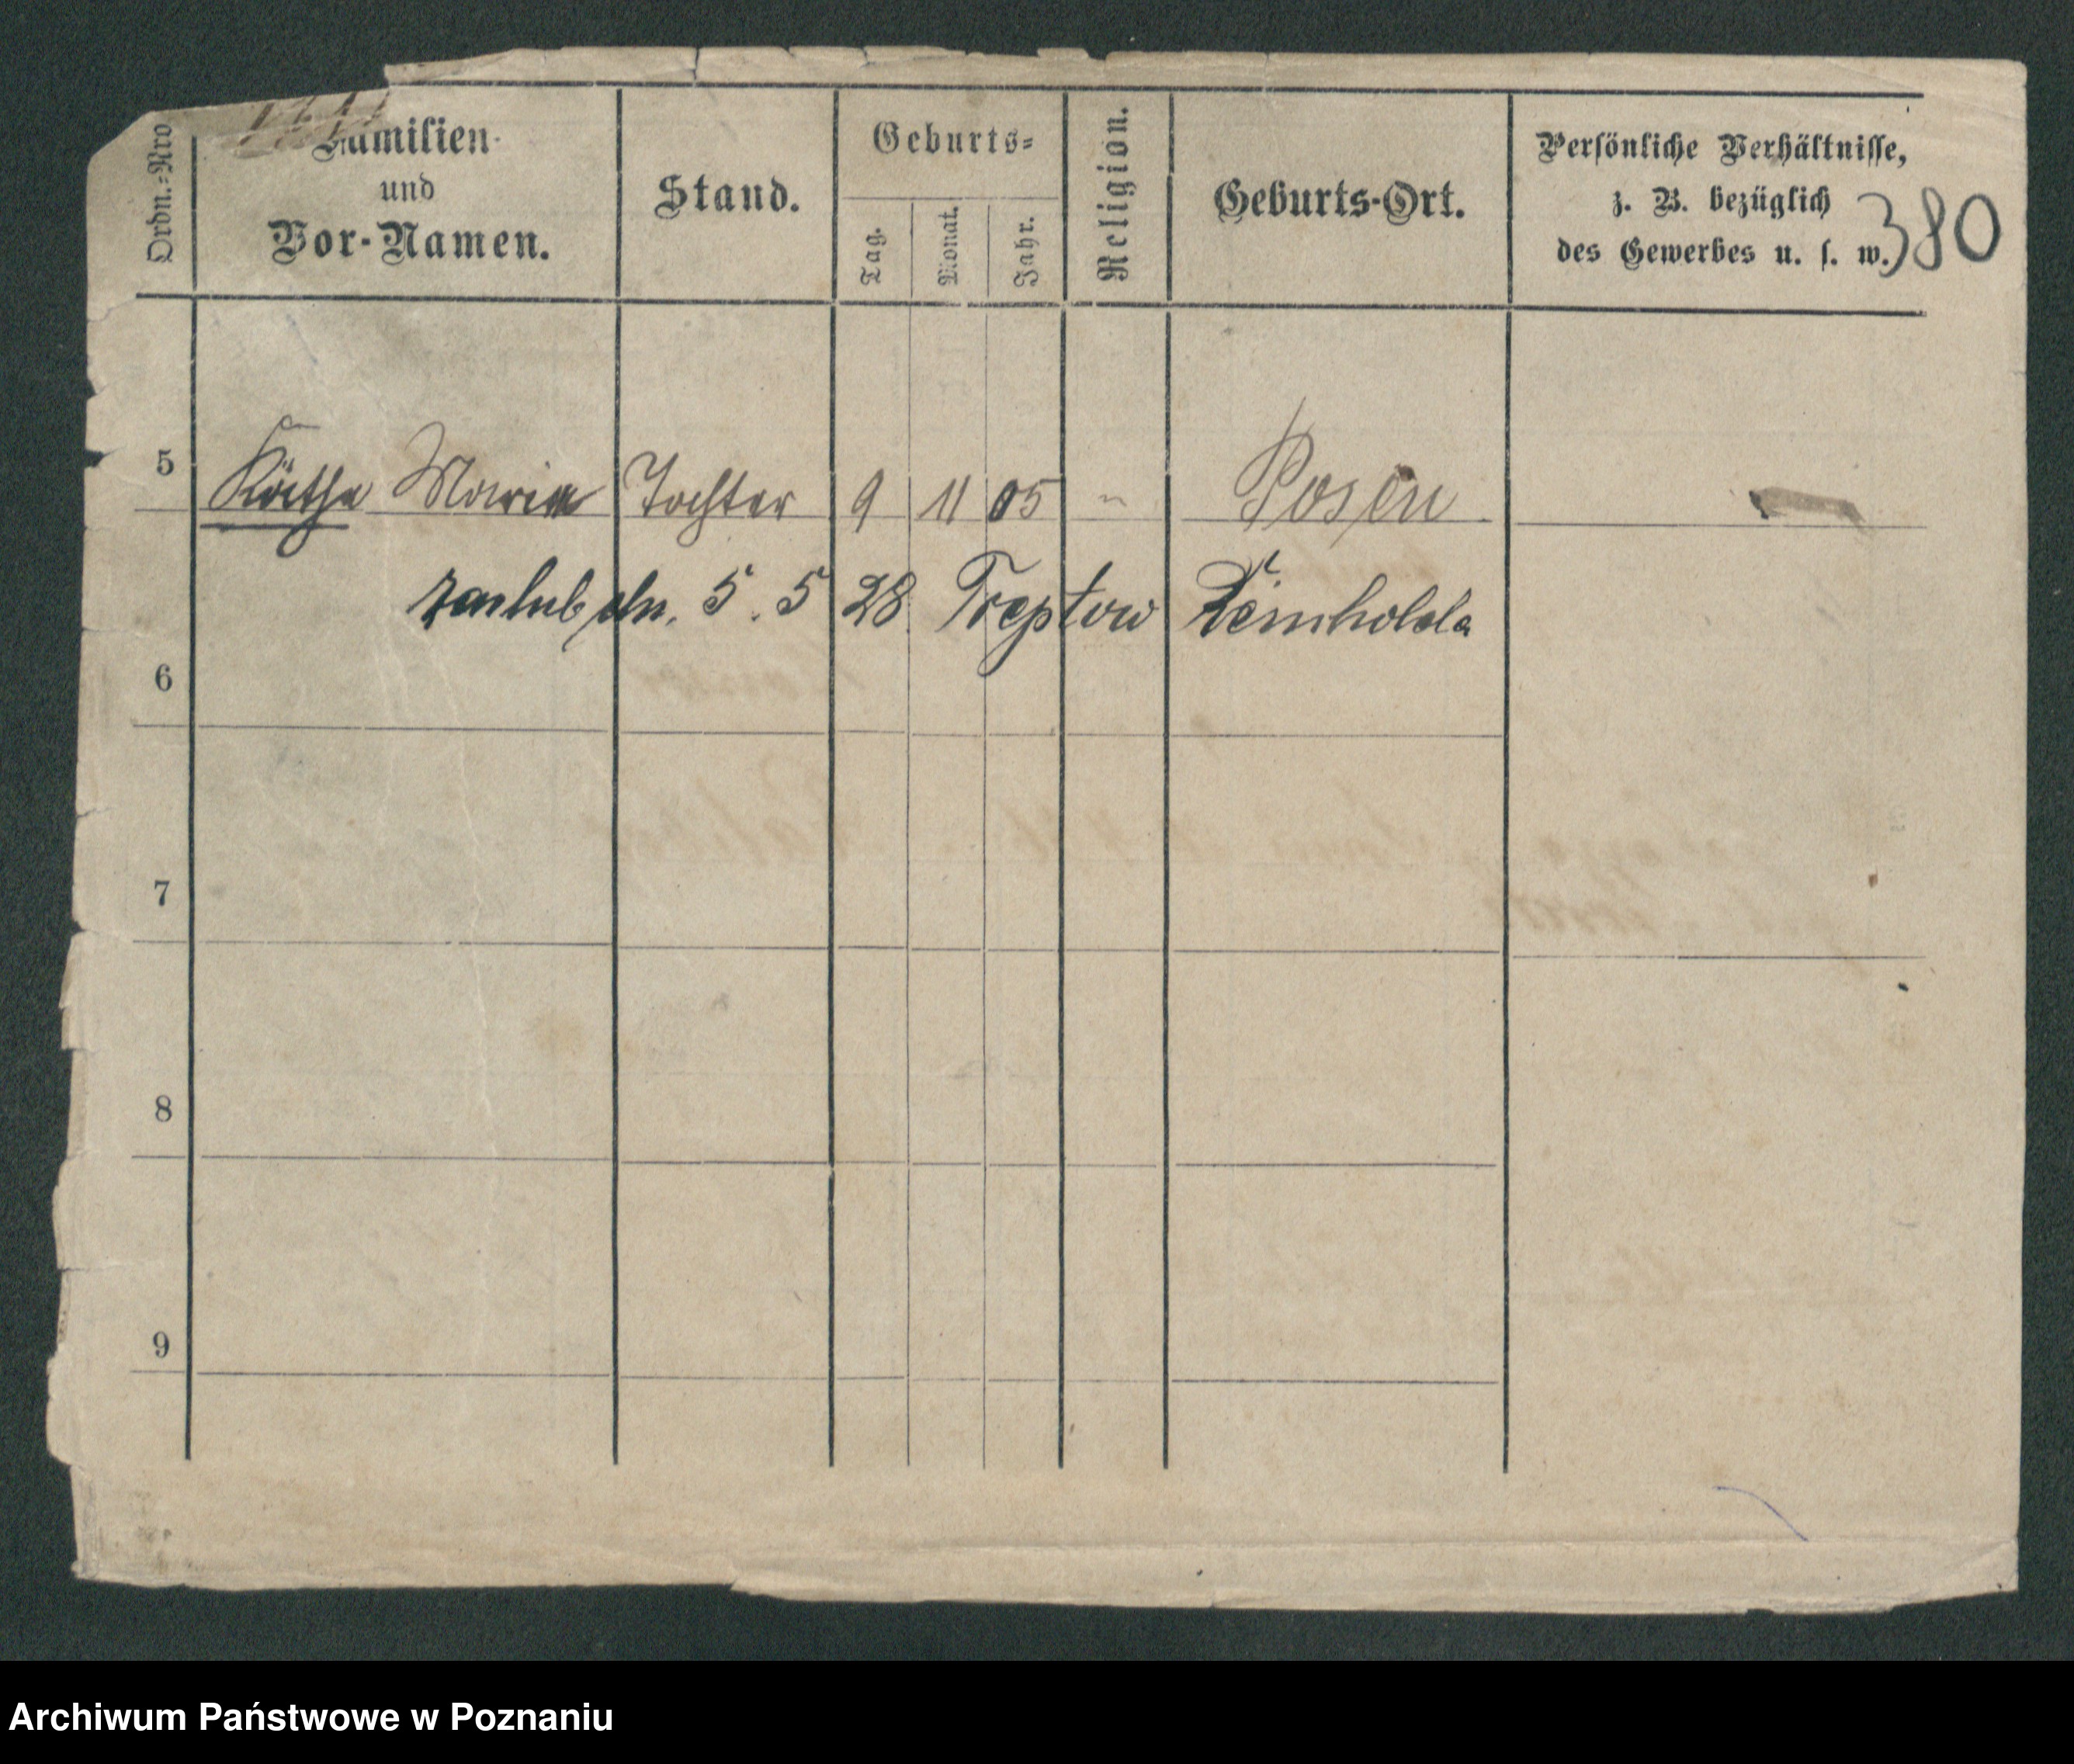 Ordn.=Nro
Familien-
und
Vor-Namen.
Stand.
Geburts=
Tag.
Monat.
Jahr.
Religion.
Geburts-Ort.
Persönliche Verhältnisse,
z. B. bezüglich
des Gewerbes u. s. w.
380
5 Käthe Marie Tochter 9 11 05 " Posen
zaślub dn. 5. 5 28 Treptow Reinholda
6
7
8
9
Archiwum Państwowe w Poznaniu